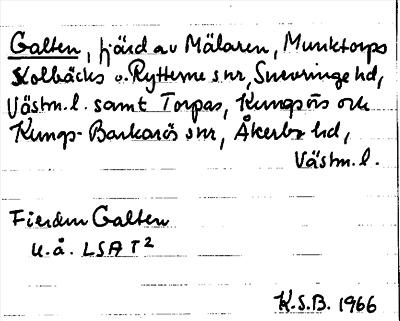 Galten, fjärd av Mälaren, Munktorps
Kolbäcks o. Rytterne snr, Snevringe hd,
Västm. l. samt Torpas, Kungsörs och
Kungs-Barkarös snr, Åkerbo hd,
Västm. l.
Fierdenn Galten
u.å. LSA T2
K.S.B. 1966